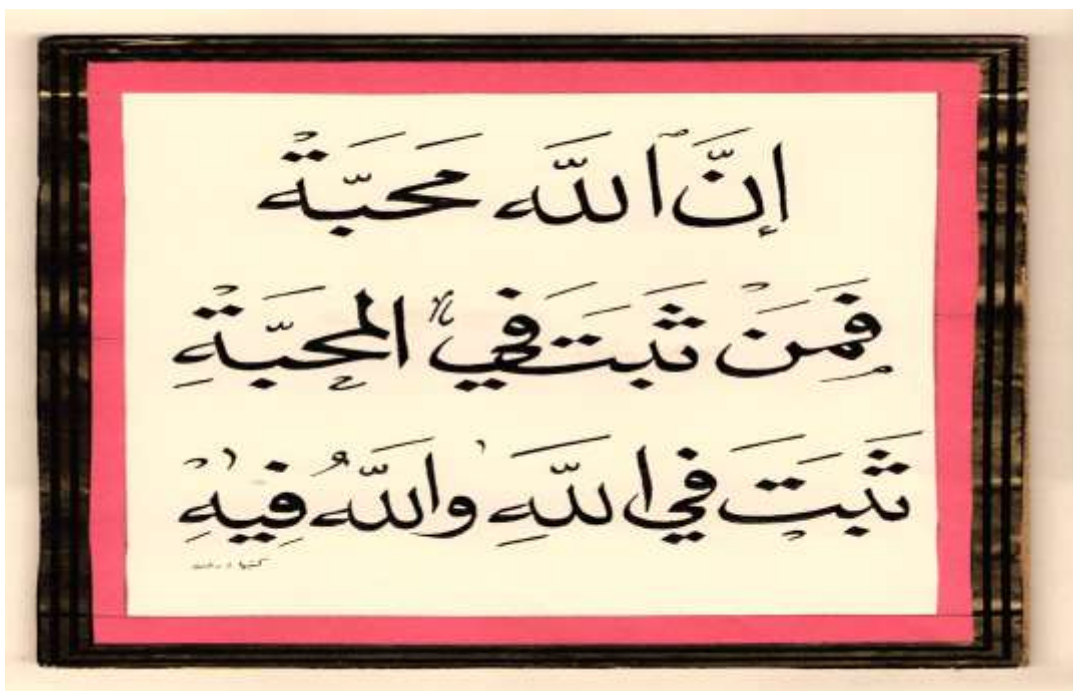 إنَّ ٱللَّه مَحَبَّةْ
فَمَنْ ثَبَتَ في المحَبَّةِ
ثَبَتَ في اللَّهِ واللَّهُ فِيهِ
كتبها